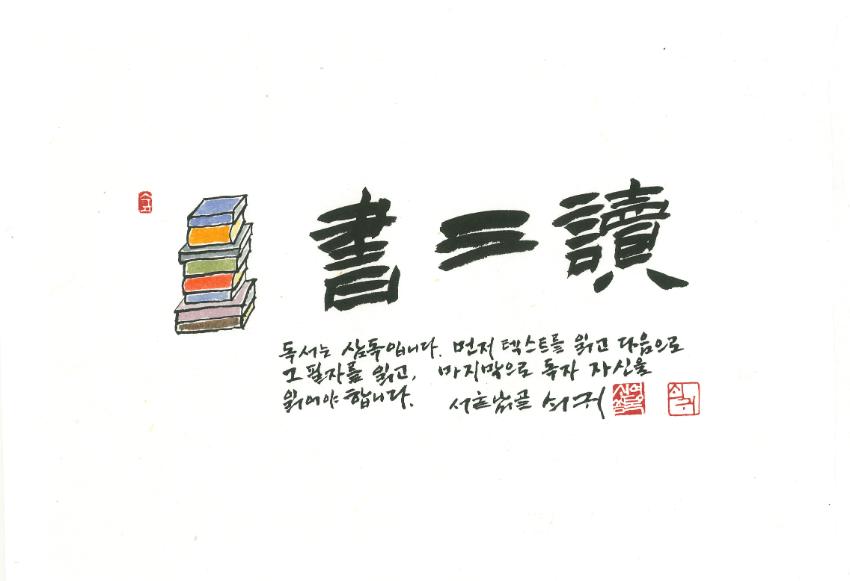 書三讀
독서는 삼독입니다. 먼저 텍스트를 읽고 다음으로
그 필자를 읽고, 마지막으로 독자 자신을
읽어야 합니다. 쇠귀
쇠귀